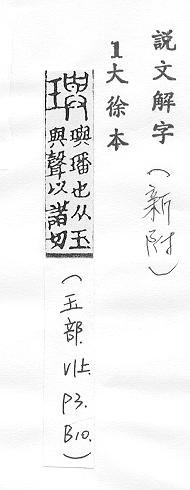 說文解字（新附）
1大徐本
璵
與璠也从玉
與聲以諸切
（玉部.1上.P3.B10.）